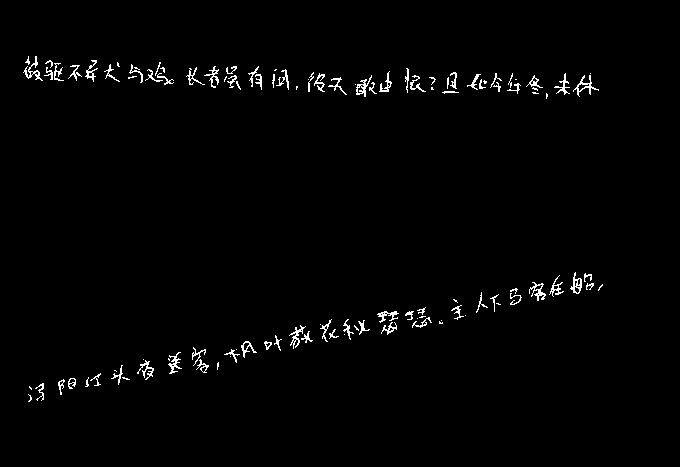 被驱不异犬与鸡。长者虽有问,役夫敢申恨?且如今年冬,未休
浔阳江头夜送客,枫叶荻花秋瑟瑟。主人下马客在船,